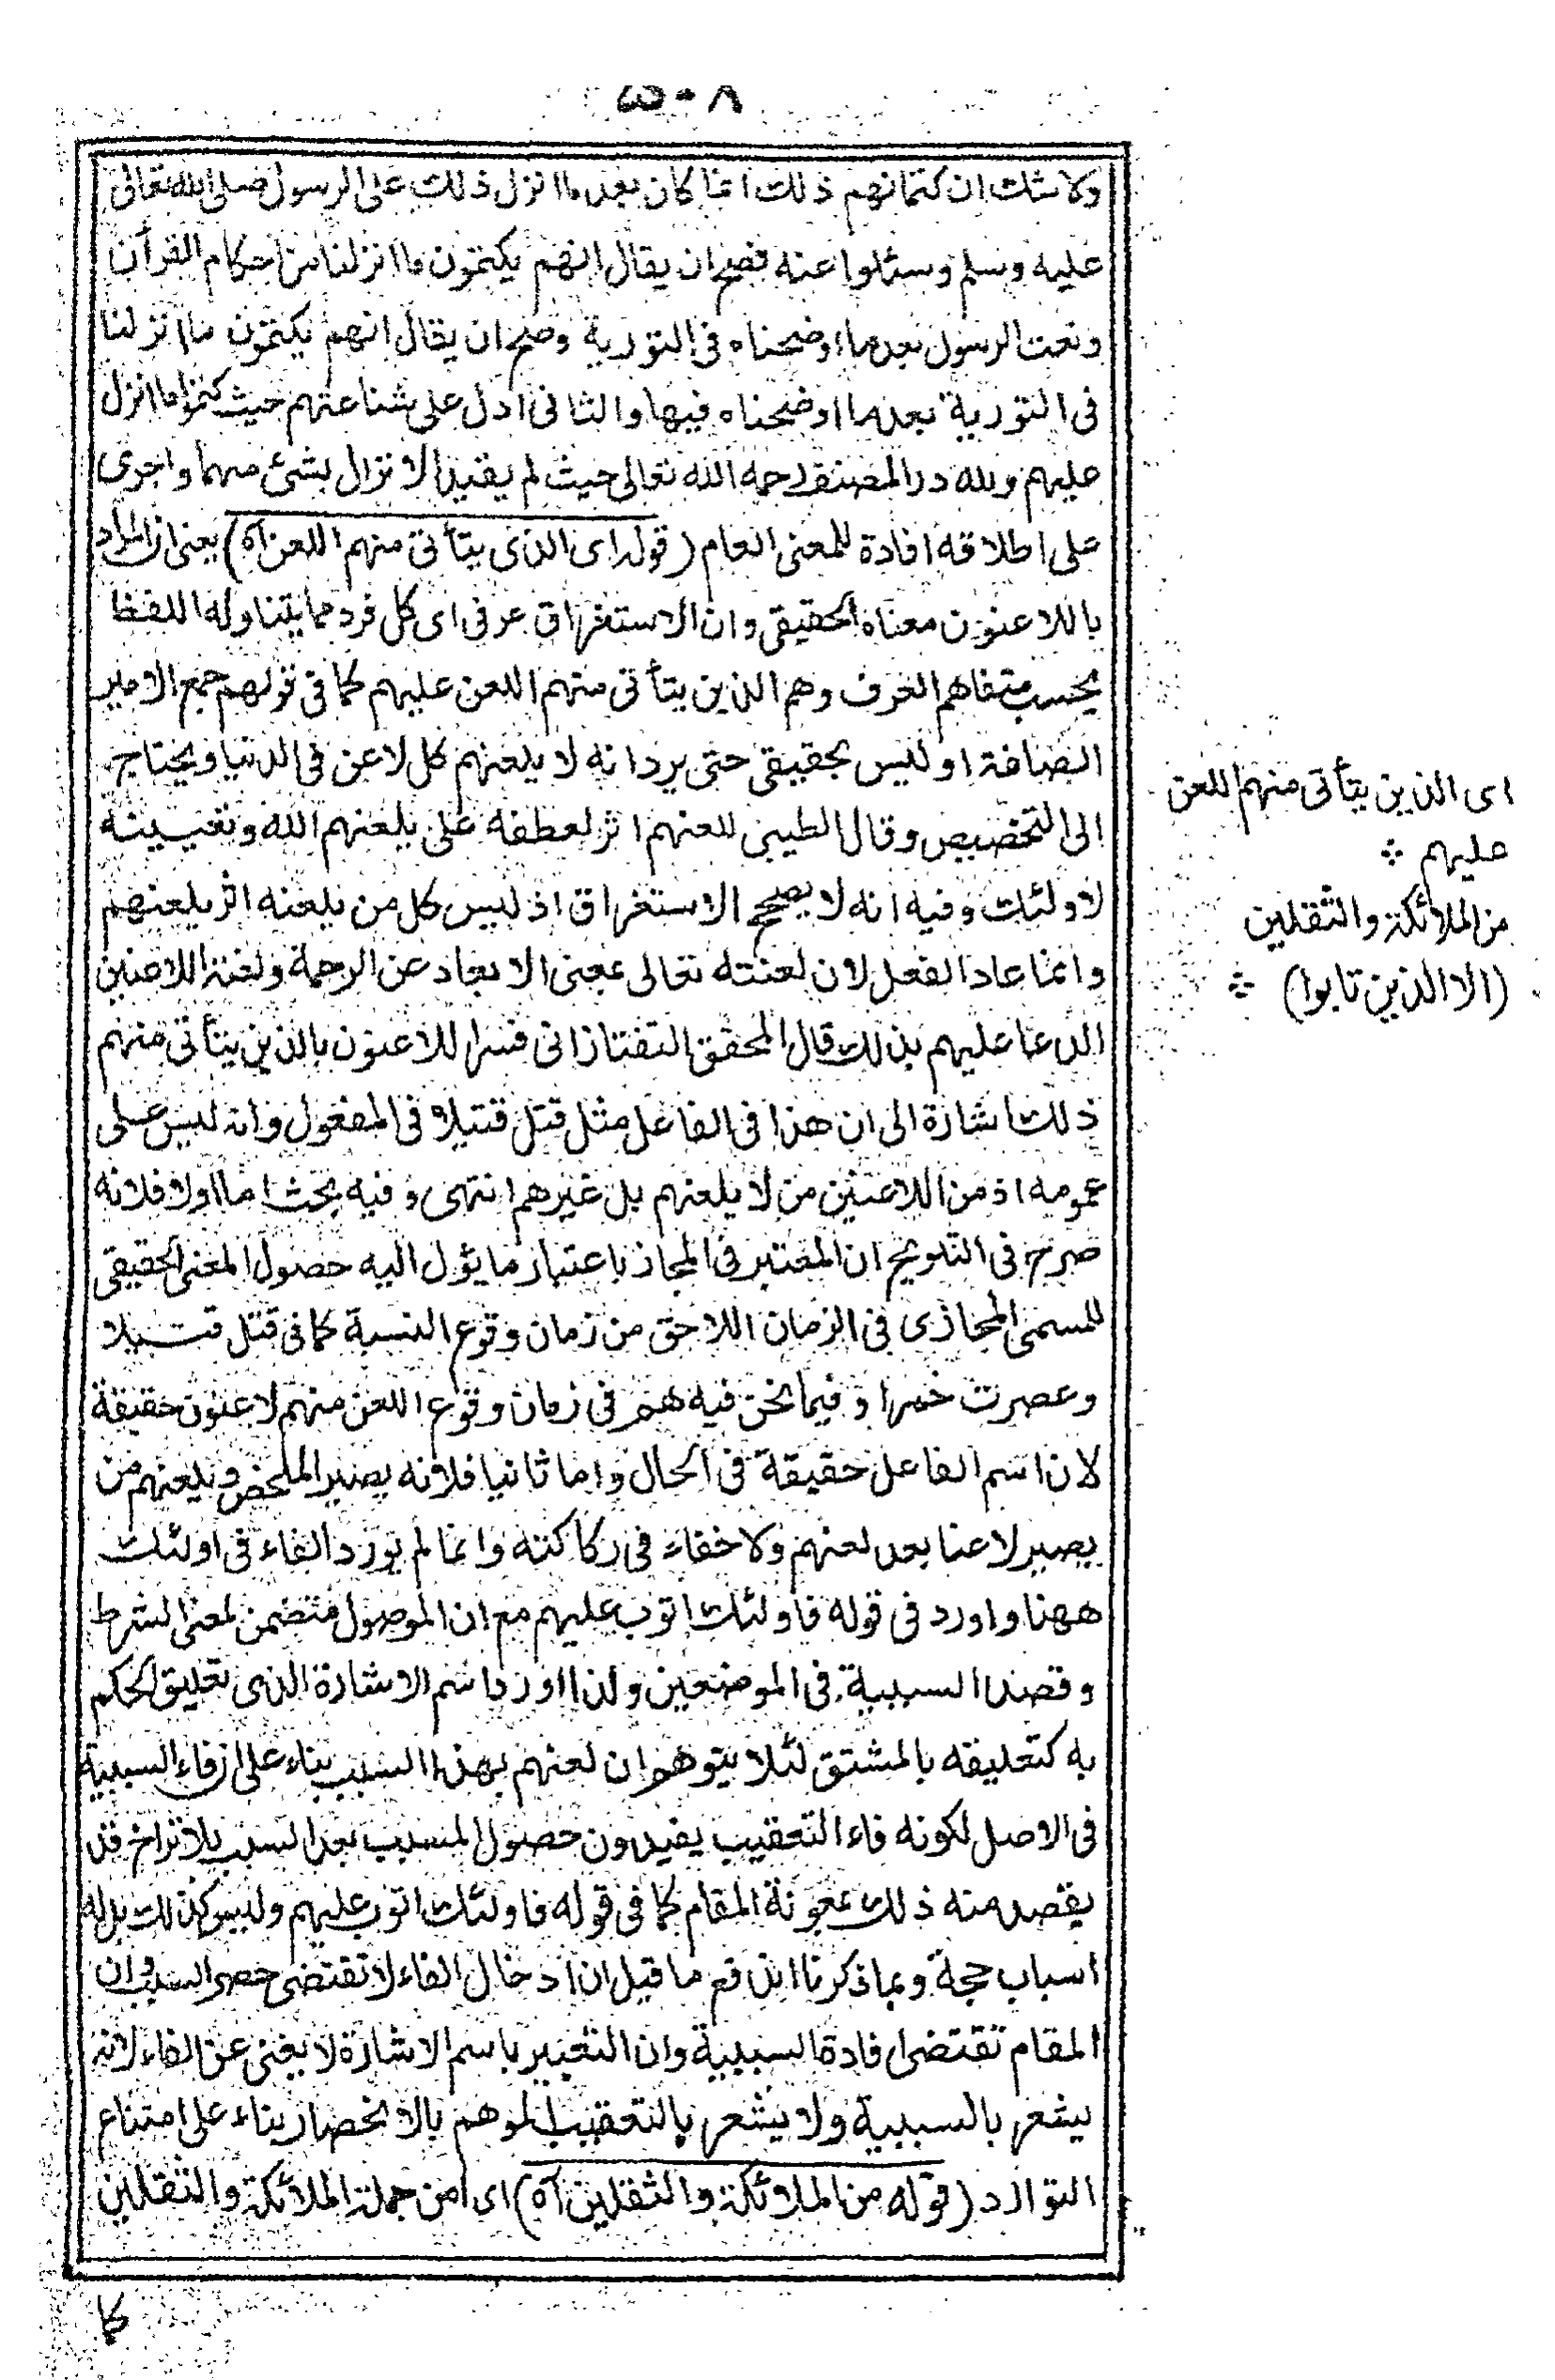 ٥٠٨
ولا شك ان كتمانهم ذلك انما كان بعد ما انزل ذلك على الرسول صلى الله تعالى
عليه وسلم وسئلوا عنه فصح ان يقال انهم يكتمون ما انزلنا من احكام القرآن
ونعت الرسول بعد ما اوضحناه فى التورية وصح ان يقال انهم يكتمون ما انزلنا
فى التورية بعد ما اوضحناه فيها والثانى ادل على شناعتهم حيث كتموا ما انزل
عليهم ولله در المصنف رحمه الله تعالى حيث لم يقيد الانزال بشئ منهما واجرى
على اطلاقه افادة للمعنى العام (قوله اى الذى يتأتى منهم اللعن آه) يعنى ان المراد
باللاعنون معناه الحقيقى وان الاستغراق عرفى اى كل فرد مما يتناوله اللفظ
بحسب متفاهم العرف وهم الذين يتأتى منهم اللعن عليهم كما فى قولهم جمع الامير
الصاغة او ليس بحقيقى حتى يرد انه لا يلعنهم كل لاعن فى الدنيا ويحتاج
الى التخصيص وقال الطيبى للعنهم اثر لعطفه على يلعنهم الله وتغيينه
لاولئك وفيه انه لا يصح الاستغراق اذ ليس كل من يلعنه اثر يلعنهم
وانما عاد الفعل لان لعنته تعالى بمعنى الابعاد عن الرحمة ولعنة اللاعنين
الدعا عليهم بذلك قال المحقق التفتازانى فسر اللاعنون بالذين يتأتى منهم
ذلك اشارة الى ان هذا فى الفاعل مثل قتل قتيلا فى المفعول وانه ليس على
عمومه اذ من اللاعنين من لا يلعنهم بل غيرهم انتهى وفيه بحث اما اولا فلانه
صرح فى التلويح ان المعتبر فى المجاز باعتبار ما يؤل اليه حصول المعنى الحقيقى
للمسمى المجازى فى الزمان اللاحق من زمان وقوع النسبة كما فى قتل قتيلا
وعصرت خمرا وفيما نحن فيه هم فى زمان وقوع اللعن منهم لاعنون حقيقة
لان اسم الفاعل حقيقة فى الحال واما ثانيا فلانه يصير الملخص ويلعنهم من
يصير لاعنا بعد لعنهم ولا خفاء فى ركاكته وانما لم يورد الفاء فى اولئك
ههنا واورد فى قوله فاولئك اتوب عليهم مع ان الموصول متضمن لمعنى الشرط
وقصد السببية فى الموضعين ولذا اورد اسم الاشارة الذى تعليق الحكم
به كتعليقه بالمشتق لئلا يتوهم ان لعنهم بهذا السبب بناء على ان فاء السببية
فى الاصل لكونه فاء التعقيب يفيد ون حصول المسبب بعد السبب بلا تراخ قد
يقصد منه ذلك بمعونة المقام كما فى قوله فاولئك اتوب عليهم وليس كذلك بل له
اسباب جمة وبما ذكرنا اندفع ما قيل ان ادخال الفاء لا تقتضى حصر السبب وان
المقام تقتضى افادة السببية وان التعبير باسم الاشارة لا يغنى عن الفاء لانه
يشعر بالسببية ولا يشعر بالتعقيب الموهم بالانحصار بناء على امتناع
التوارد (قوله من الملائكة والثقلين آه) اى من جملة الملائكة والثقلين
كما
اى الذين يتأتى منهم اللعن
عليهم ❖
من الملائكة والثقلين
(الا الذين تابوا) ❖